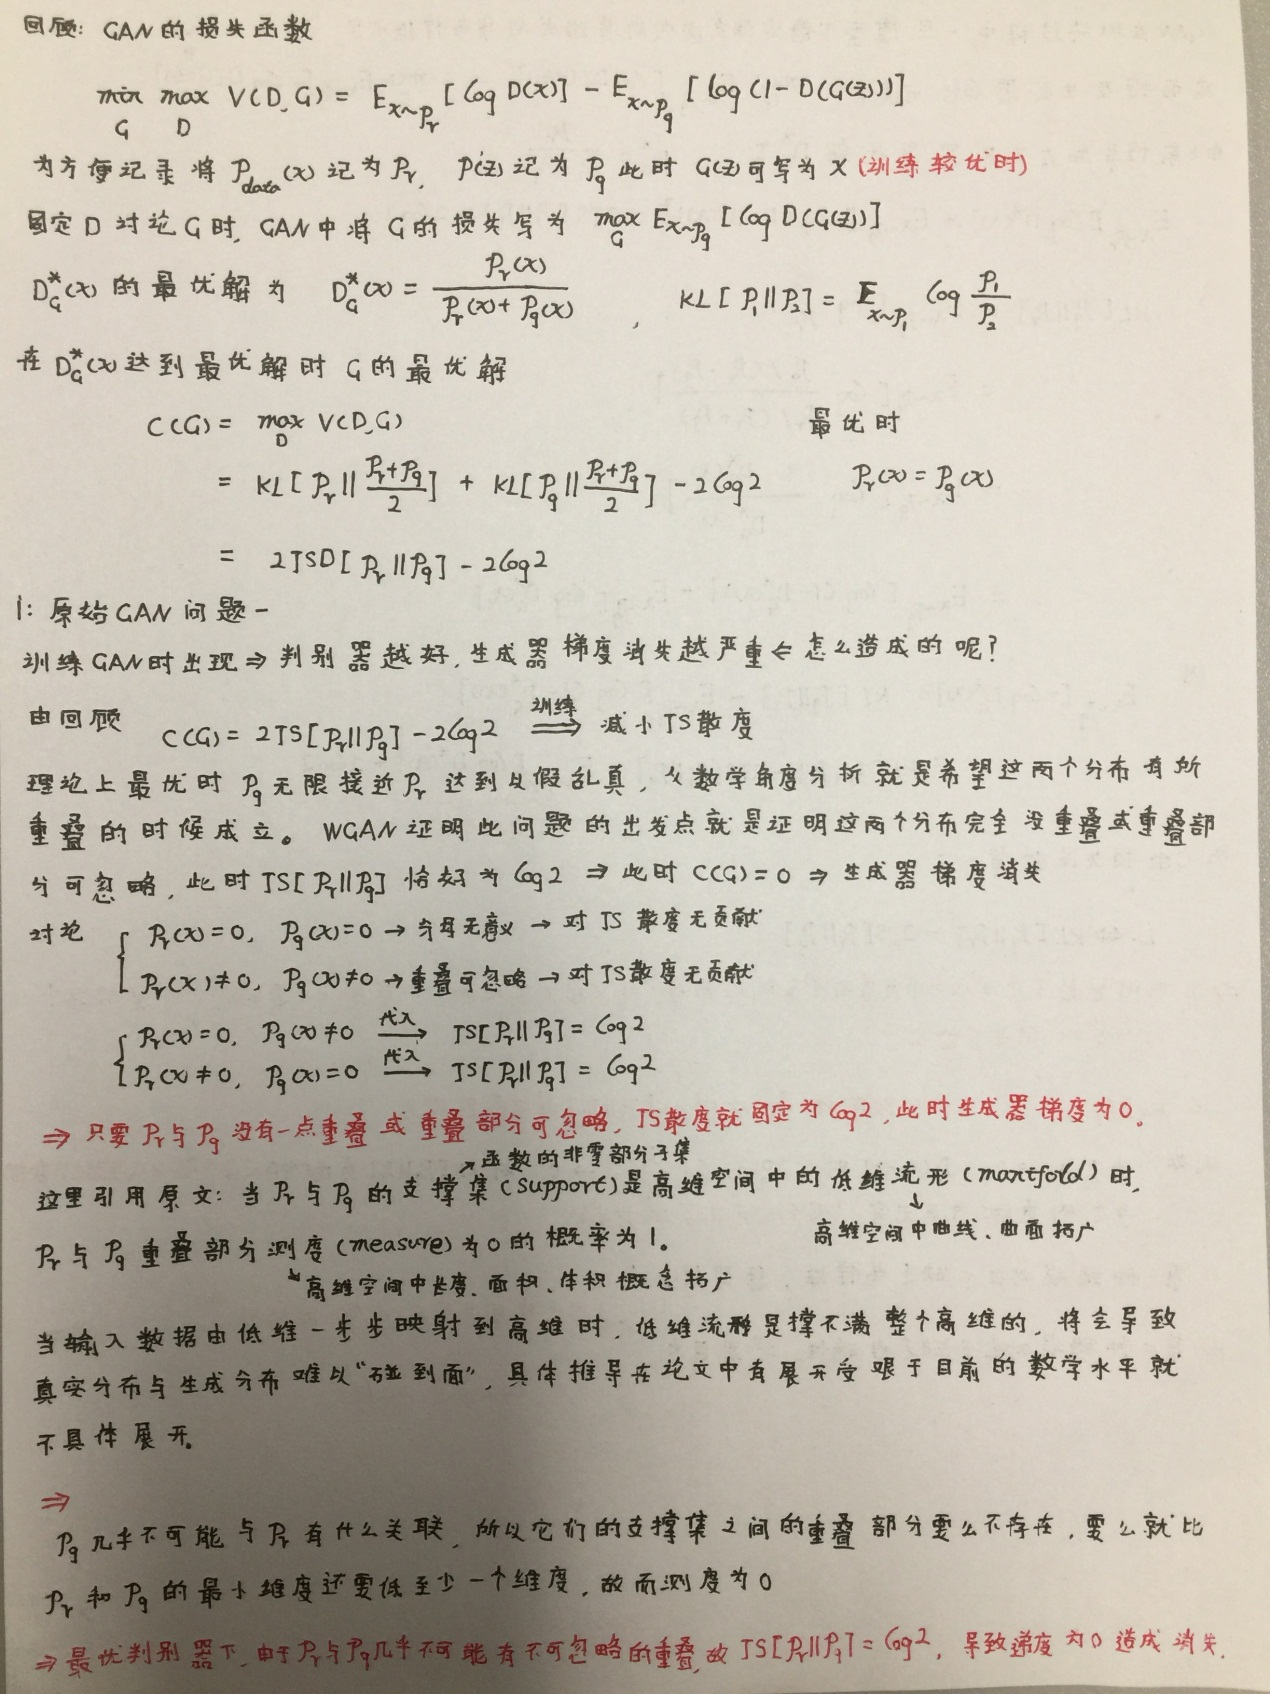 回顾: GAN的损失函数
min max V(D,G) = E x~Pr [log D(x)] - E x~Pg [log(1-D(G(z)))]
G D
为方便记录将 Pdata(x) 记为 Pr, P(z) 记为 Pg 此时 G(z)可写为 x (训练较优时)
固定D讨论G时, GAN中将G的损失写为 max G E x~Pg [log D(G(z))]
D*G(x) 的最优解为 D*G(x) = Pr(x) / (Pr(x) + Pg(x)) , KL[P1||P2] = E x~P1 log P1/P2
在 D*G(x) 达到最优解时 G 的最优解
C(G) = max D V(D,G) 最优时
= KL[Pr||(Pr+Pg)/2] + KL[Pg||(Pr+Pg)/2] - 2log2 Pr(x) = Pg(x)
= 2JSD[Pr||Pg] - 2log2
1: 原始GAN问题一
训练GAN时出现⇒判别器越好,生成器梯度消失越严重⇐怎么造成的呢?
由回顾 C(G) = 2JS[Pr||Pg] - 2log2 训练⇒ 减小JS散度
理论上最优时 Pg无限接近Pr 达到以假乱真, 从数学角度分析就是希望这两个分布有所
重叠的时候成立。 WGAN证明此问题的出发点就是证明这两个分布完全没重叠或重叠部
分可忽略, 此时 JS[Pr||Pg] 恰好为 log2 ⇒ 此时 C(G)=0 ⇒ 生成器梯度消失
讨论 { Pr(x)=0, Pg(x)=0 → 分母无意义 → 对JS散度无贡献
Pr(x)≠0, Pg(x)≠0 → 重叠可忽略 → 对JS散度无贡献
{ Pr(x)=0, Pg(x)≠0 代入→ JS[Pr||Pg] = log2
Pr(x)≠0, Pg(x)=0 代入→ JS[Pr||Pg] = log2
⇒ 只要Pr与Pg没有一点重叠或重叠部分可忽略, JS散度就固定为log2, 此时生成器梯度为0。
↗函数的非零部分子集
这里引用原文: 当Pr与Pg的支撑集(support)是高维空间中的低维流形(manifold)时,
↓高维空间中曲线、曲面拓广
Pr与Pg重叠部分测度(measure)为0的概率为1。
↘高维空间中长度、面积、体积概念拓广
当输入数据由低维一步步映射到高维时, 低维流形是撑不满整个高维的, 将会导致
真实分布与生成分布难以“碰到面”, 具体推导在论文中有展开受限于目前的数学水平就
不具体展开。
⇒
Pg几乎不可能与Pr有什么关联, 所以它们的支撑集之间的重叠部分要么不存在, 要么就比
Pr和Pg的最小维度还要低至少一个维度, 故而测度为0
⇒最优判别器下, 由于Pr与Pg几乎不可能有不可忽略的重叠, 故 JS[Pr||Pg]=log2, 导致递度为0造成消失.